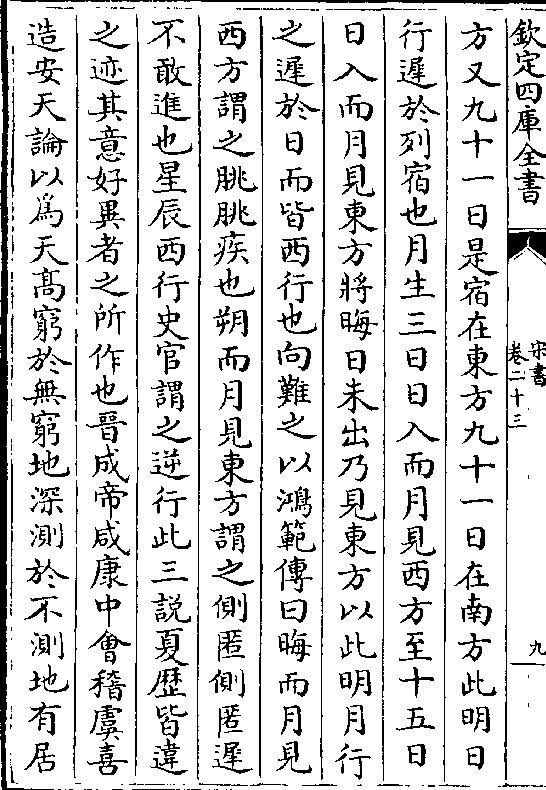 欽定四庫全書
宋書
卷二十三
九
方又九十一日是宿在東方九十一日在南方此明日
行遲於列宿也月生三日日入而月見西方至十五日
日入而月見東方將晦日未出乃見東方以此明月行
之遲於日而皆西行也向難之以鴻範傳曰晦而月見
西方謂之朓朓疾也朔而月見東方謂之側匿側匿遲
不敢進也星辰西行史官謂之逆行此三說夏歷皆違
之迹其意好異者之所作也晉成帝咸康中會稽虞喜
造安天論以為天髙窮於無窮地深測於不測地有居